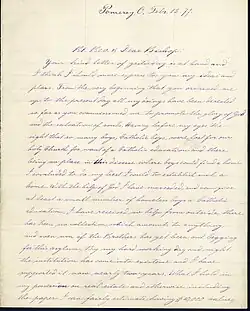 Pomeroy O. Feb. 15. 77.
Rt. Rev. & Dear Bishop:
Your kind letter of yesterday is at hand and
I think I should now express to you my ideas and
plans. From the very beginning that you ordained me
up to the present day all my doings have been directed
so far as you commissioned me to promote the glory of God
and the salvation of souls. Having before my eyes the
sight that so many boys, Catholic boys, were lost for our
holy Church for want of a Catholic education and there
being no place in this diocese where boys could find a home
I concluded to do my best I could to establish such a
home. With the help of God I have succeeded and can give
at least a small number of homeless boys a Catholic
education. I have received no help from outside, there
has been no collection which amounts to anything
and even one of the Brothers has yet been out begging
for this asylum. By my hard working day and night
the institution has come into existence and I have
supported it now nearly two years. What I hold in
my possession on real estate and otherwise, including
the paper I am fairly estimate having $10,000 values